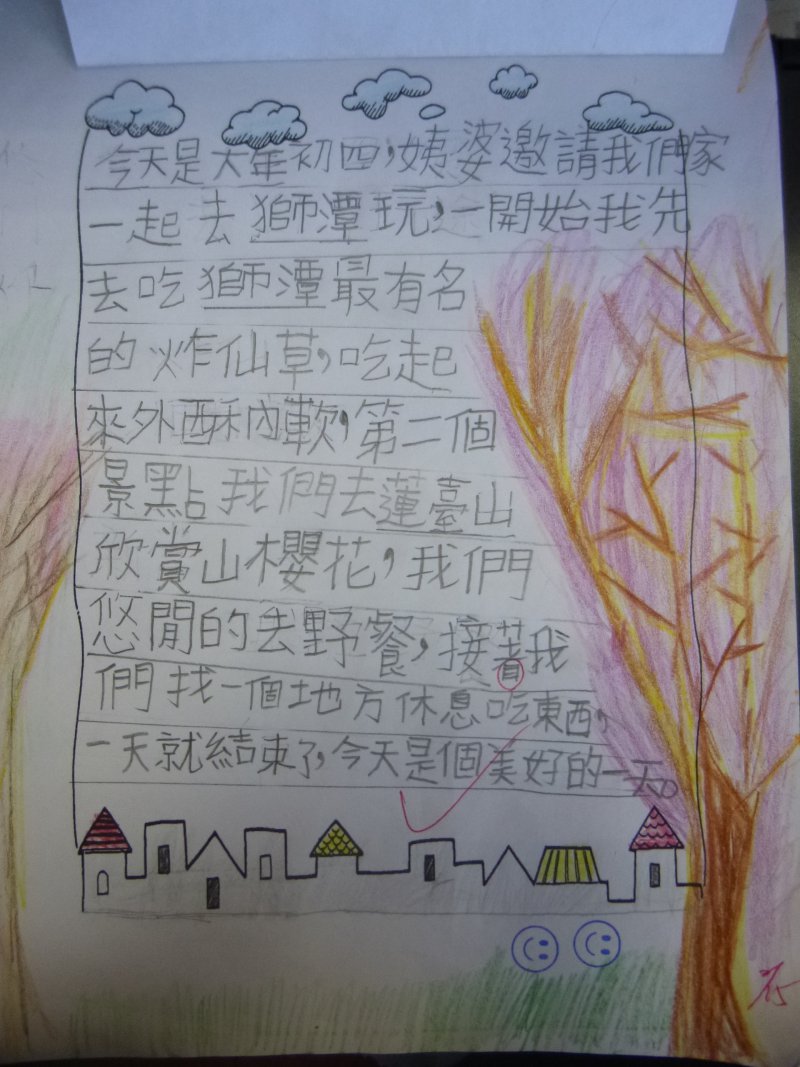 今天是大年初四，姨婆邀請我們家
一起去獅潭玩，一開始我先
去吃獅潭最有名
的炸仙草，吃起
來外酥內軟，第二個
景點我們去蓮臺山
欣賞山櫻花，我們
悠閒的去野餐，接著我
們找一個地方休息吃東西，
一天就結束了，今天是個美好的一天。